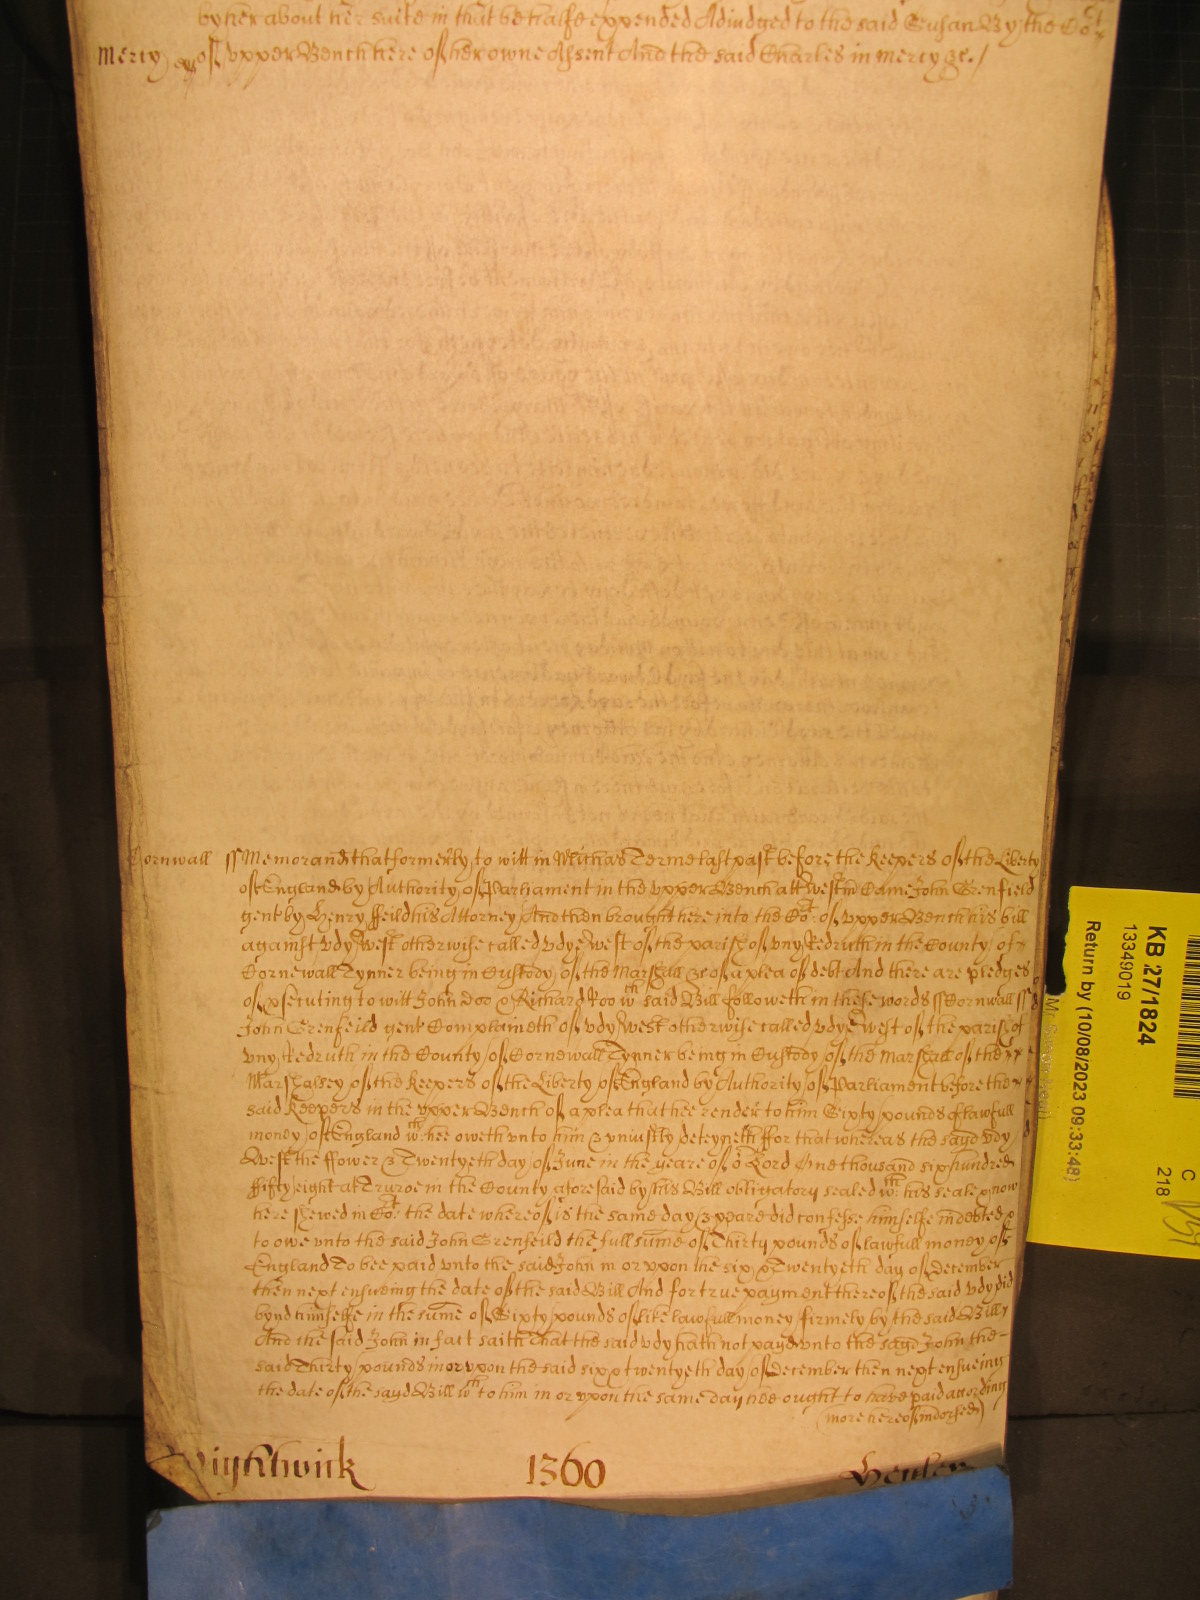 by her about her suite in that behalfe expended Adiudged to the said Susan By the Cort
Mercy
of upper Bench here of her owne Assent And the said Charles in mercy &c. /
Cornwall ss Memorand that formerly to witt in Michas Terme last past before the Keepers of the Liberty
of England by Authority of Parliament in the upper Bench att Westm Came John Grenfield
gent by Henry ffeild his Attorney And then brought here into the Cort of upper Bench his bill
against Udy West otherwise called Udye West of the parish of Uny Redruth in the County of
Cornewall Tynner being in Custody of the Marshall &c of a plea of debt And there are pledges
of psecuting to witt John Doo & Richard Roo wth said Bill followeth in these words ss Cornwall ss
John Grenfeild gent Complaineth of Udy West otherwise called Udye West of the parish of
Uny Redruth in the County of Cornewall Tynner being in Custody of the Marshall of the
Marshalsey of the Keepers of the Liberty of England by Authority of Parliament before the
said Keepers in the upper Bench of a plea that hee render to him Sixty pounds of lawfull
money of England wch hee oweth unto him & uniustly deteyneth ffor that whereas the sayd Udy
West the ffower & Twentyeth day of June in the yeare of or Lord One thousand six hundred
ffifty eight at Truroe in the County aforesaid by his Bill obligatory sealed wth his seale & now
here shewed in Cort the date whereof is the same day & yeare did confesse himselfe indebted &
to owe unto the said John Grenfeild the full sume of Thirty pounds of lawfull money of
England To bee paid unto the said John in or upon the six & Twentyeth day of December
then next ensueing the date of the said Bill And for true payment thereof the said Udy did
bynd himselfe in the sume of Sixty pounds of like lawfull money firmely by the said Bill
And the said John in fact saith That the said Udy hath not payd unto the sayd John the
said Thirty pounds in or upon the said six & twentyeth day of December then next ensueing
the date of the sayd Bill wch to him in or upon the same day hee ought to have paid according
(more hereof indorsed)
1360
KB 27/1824
13349019
Return by (10/08/2023 09:33:48)
C
218